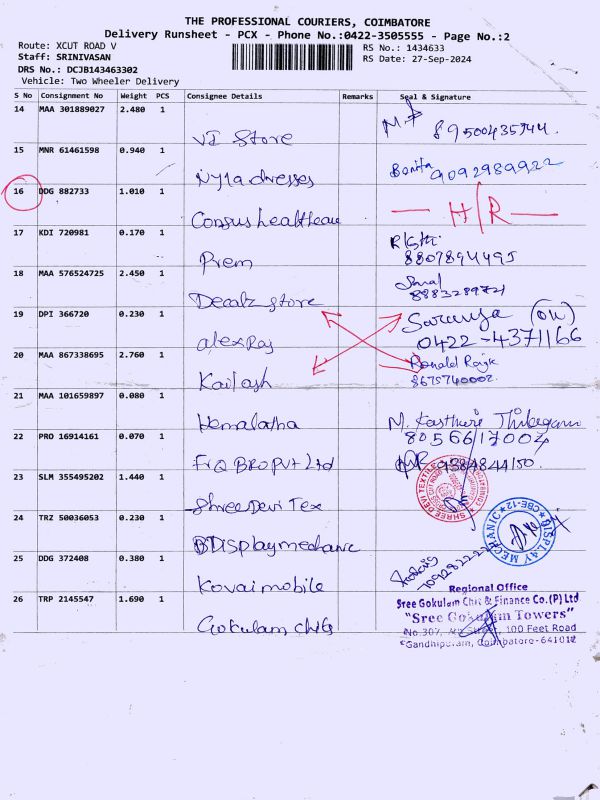 THE PROFESSIONAL COURIERS, COIMBATORE
Delivery Runsheet - PCX - Phone No.:0422-3505555 - Page No.:2
Route: XCUT ROAD V
RS No.: 1434633
Staff: SRINIVASAN
RS Date: 27-Sep-2024
DRS No.: DCJB143463302
Vehicle: Two Wheeler Delivery
S No Consignment No Weight PCS Consignee Details Remarks Seal & Signature
14 MAA 301889027 2.480 1
VI Store
15 MNR 61461598 0.940 1
Bonita 9092989922
Nyla dresses
16 DDG 882733 1.010 1
H/R
Consus healthcare
17 KDI 720981 0.170 1
8807894495
Prem
18 MAA 576524725 2.450 1
8883289721
Decalz store
19 DPI 366720 0.230 1
Saranya (ou)
0422-4371166
alex Raj
20 MAA 867338695 2.760 1
Ronald
8675740002
Kailash
21 MAA 101659897 0.080 1
M. Kasthuri
Hemalatha
22 PRO 16914161 0.070 1
8056617004
FrQ BRO PVt Ltd
9384844150
23 SLM 355495202 1.440 1
SHREE DEVI TEXTILE
Shree Devi Tex
24 TRZ 50036053 0.230 1
DISPLAY MECHANIC CBE-12
BDisplay mechanic
25 DDG 372408 0.380 1
Kovai mobile
26 TRP 2145547 1.690 1
Gokulam chits
Regional Office
Sree Gokulam Chit & Finance Co.(P) Ltd
"Sree Gokulam Towers"
No.307, Street, 100 Feet Road
Gandhipuram, Coimbatore-641012